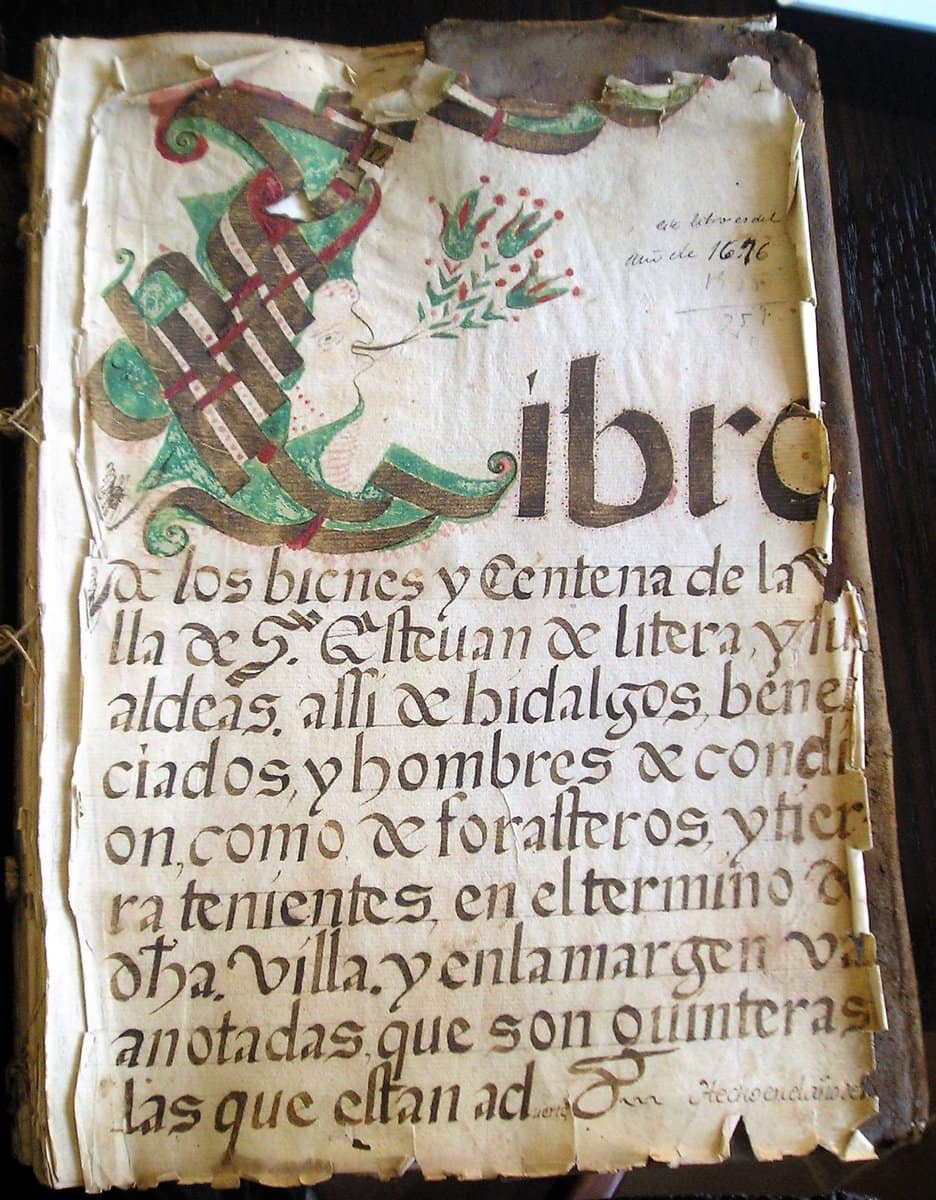 este libro es del
año de 1676
Libro
de los bienes y Centena de la V
lla de Sn. Esteuan de litera, y su
aldeas. assi de hidalgos, bene
ciados, y hombres de condi
on, como de forasteros, y tier
ra tenientes, en el termino de
dha. Villa. y en la margen va
anotadas, que son quinteras
las que estan ad
Hecho en el año de